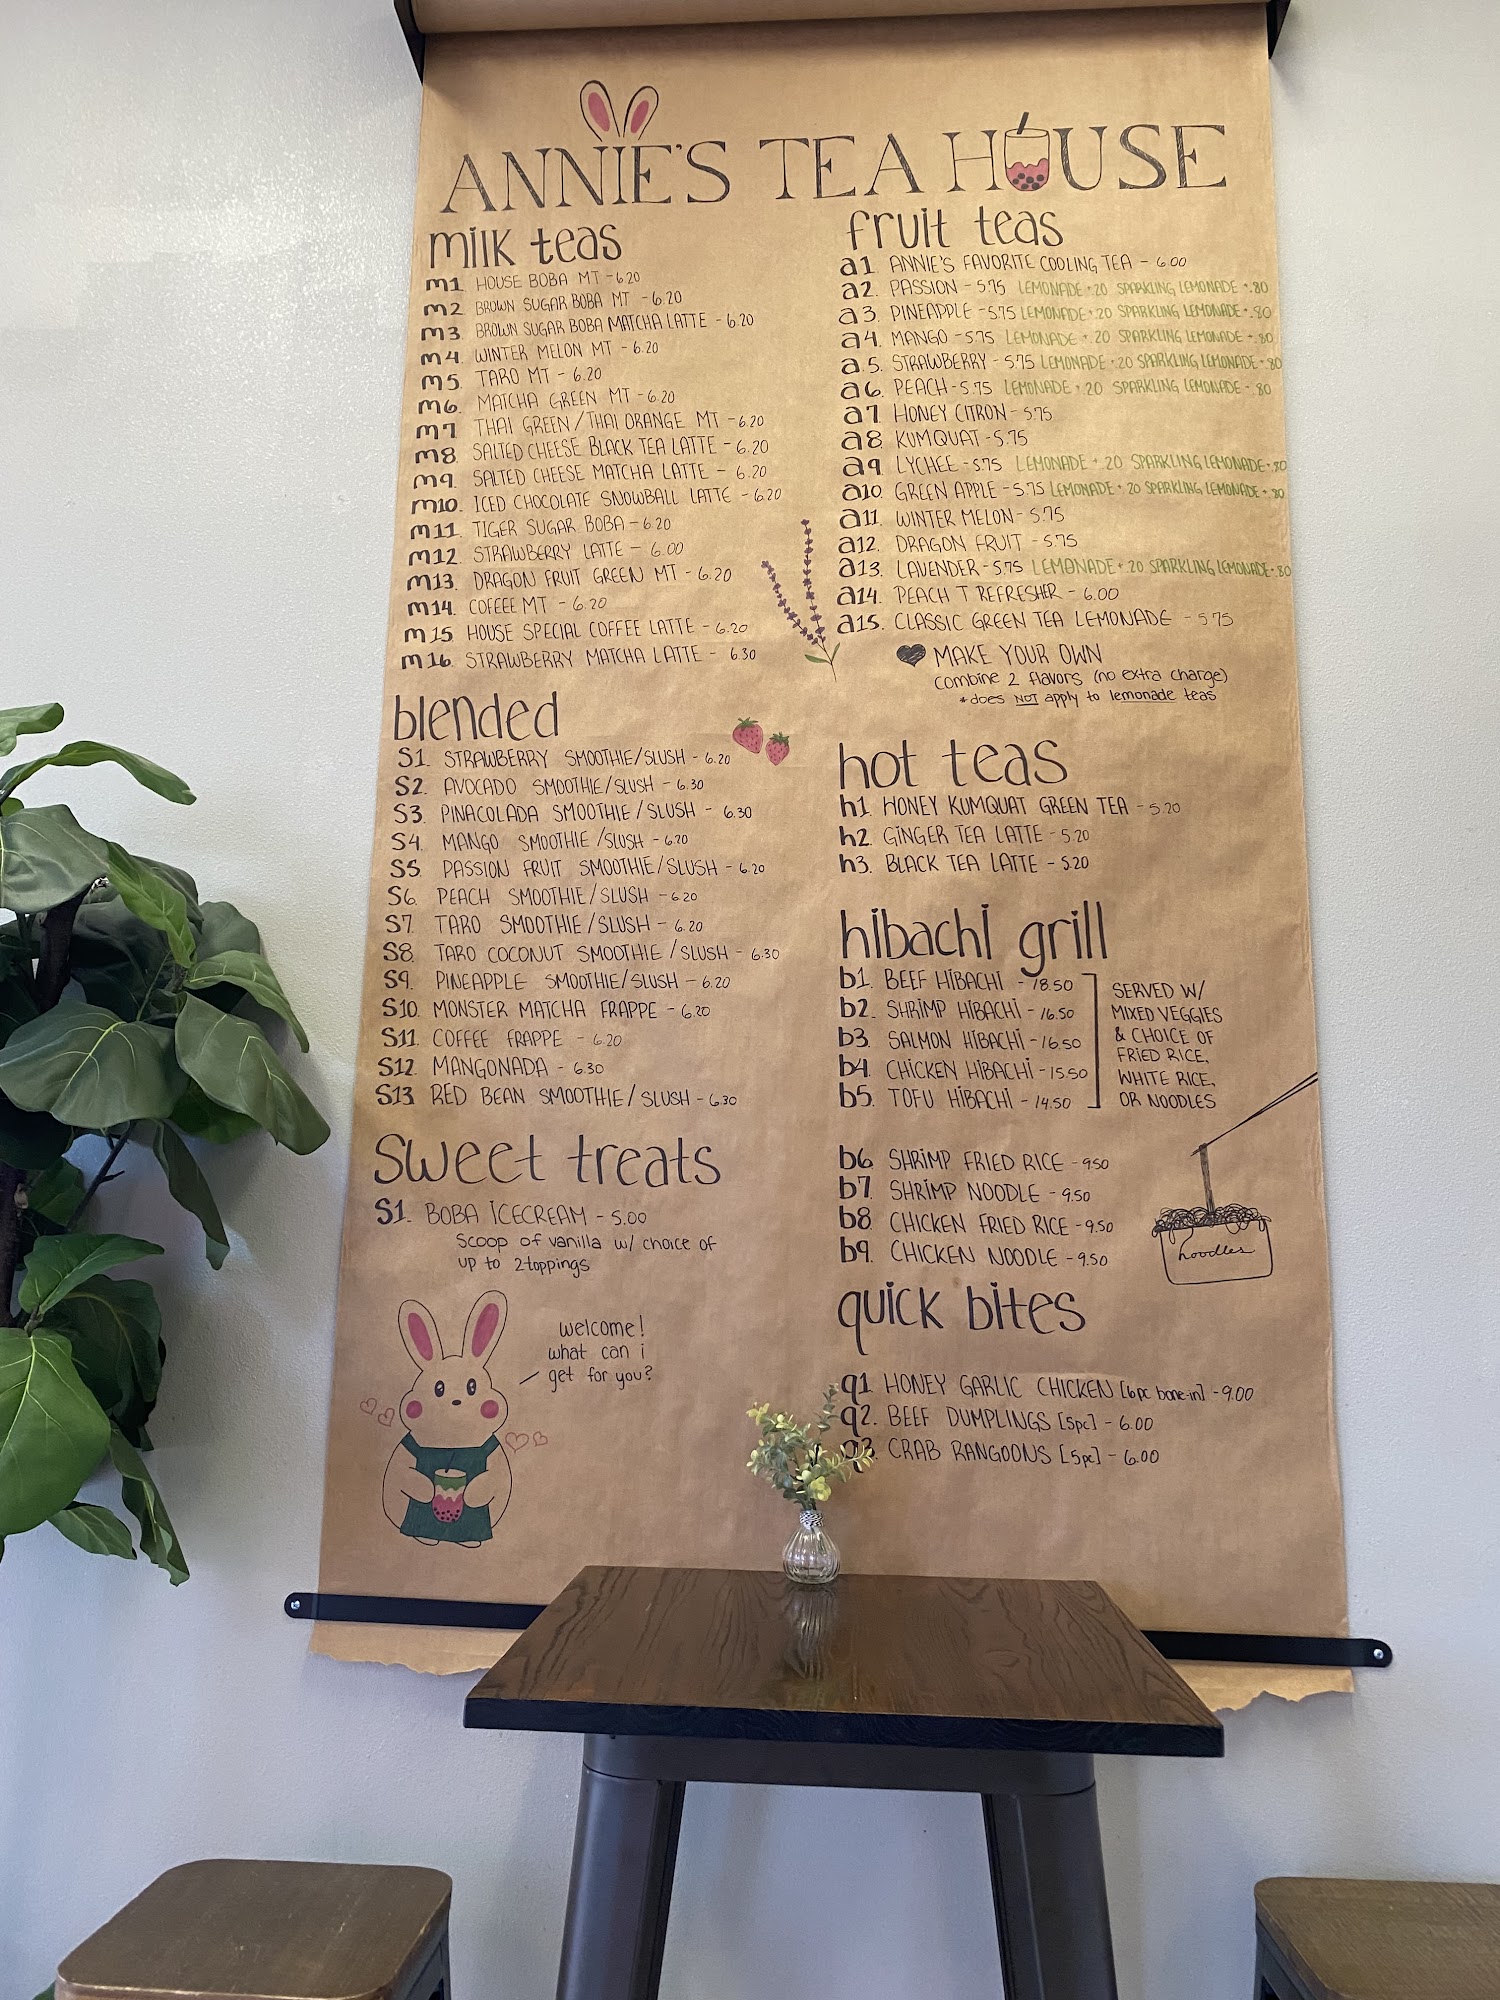 ANNIE'S TEA HOUSE
milk teas
m1. HOUSE BOBA MT - 6.20
m2. BROWN SUGAR BOBA MT - 6.20
m3. BROWN SUGAR BOBA MATCHA LATTE - 6.20
m4. WINTER MELON MT - 6.20
m5. TARO MT - 6.20
m6. MATCHA GREEN MT - 6.20
m7. THAI GREEN/THAI ORANGE MT - 6.20
m8. SALTED CHEESE BLACK TEA LATTE - 6.20
m9. SALTED CHEESE MATCHA LATTE - 6.20
m10. ICED CHOCOLATE SNOWBALL LATTE - 6.20
m11. TIGER SUGAR BOBA - 6.20
m12. STRAWBERRY LATTE - 6.00
m13. DRAGON FRUIT GREEN MT - 6.20
m14. COFEEE MT - 6.20
m15 HOUSE SPECIAL COFFEE LATTE - 6.20
m16. STRAWBERRY MATCHA LATTE - 6.30
blended
S1. STRAWBERRY SMOOTHIE/SLUSH - 6.20
S2. AVOCADO SMOOTHIE/SLUSH - 6.30
S3. PINACOLADA SMOOTHIE/SLUSH - 6.30
S4. MANGO SMOOTHIE/SLUSH - 6.20
S5. PASSION FRUIT SMOOTHIE/SLUSH - 6.20
S6. PEACH SMOOTHIE/SLUSH - 6.20
S7. TARO SMOOTHIE/SLUSH - 6.20
S8. TARO COCONUT SMOOTHIE/SLUSH - 6.30
S9. PINEAPPLE SMOOTHIE/SLUSH - 6.20
S10. MONSTER MATCHA FRAPPE - 6.20
S11. COFFEE FRAPPE - 6.20
S12. MANGONADA - 6.30
S13. RED BEAN SMOOTHIE/SLUSH - 6.30
Sweet treats
S1. BOBA ICECREAM - 5.00
Scoop of vanilla w/ choice of
up to 2 toppings
welcome!
what can i
get for you?
fruit teas
a1. ANNIE'S FAVORITE COOLING TEA - 6.00
a2. PASSION - 5.75 LEMONADE +.20 SPARKLING LEMONADE +.80
a3. PINEAPPLE - 5.75 LEMONADE +.20 SPARKLING LEMONADE +.80
a4. MANGO - 5.75 LEMONADE +.20 SPARKLING LEMONADE +.80
a5. STRAWBERRY - 5.75 LEMONADE +.20 SPARKLING LEMONADE +.80
a6. PEACH - 5.75 LEMONADE +.20 SPARKLING LEMONADE +.80
a7. HONEY CITRON - 5.75
a8. KUMQUAT - 5.75
a9. LYCHEE - 5.75 LEMONADE +.20 SPARKLING LEMONADE +.80
a10. GREEN APPLE - 5.75 LEMONADE +.20 SPARKLING LEMONADE +.80
a11. WINTER MELON - 5.75
a12. DRAGON FRUIT - 5.75
a13. LAVENDER - 5.75 LEMONADE +.20 SPARKLING LEMONADE +.80
a14. PEACH T REFRESHER - 6.00
a15. CLASSIC GREEN TEA LEMONADE - 5.75
MAKE YOUR OWN
Combine 2 flavors (no extra charge)
*does NOT apply to lemonade teas
hot teas
h1. HONEY KUMQUAT GREEN TEA - 5.20
h2. GINGER TEA LATTE - 5.20
h3. BLACK TEA LATTE - 5.20
hibachi grill
b1. BEEF HIBACHI - 18.50
b2. SHRIMP HIBACHI - 16.50
b3. SALMON HIBACHI - 16.50
b4. CHICKEN HIBACHI - 15.50
b5. TOFU HIBACHI - 14.50
SERVED W/
MIXED VEGGIES
& CHOICE OF
FRIED RICE,
WHITE RICE,
OR NOODLES
b6. SHRIMP FRIED RICE - 9.50
b7. SHRIMP NOODLE - 9.50
b8. CHICKEN FRIED RICE - 9.50
b9. CHICKEN NOODLE - 9.50
noodles
quick bites
q1. HONEY GARLIC CHICKEN [6pc bone-in] - 9.00
q2. BEEF DUMPLINGS [5pc] - 6.00
q3. CRAB RANGOONS [5pc] - 6.00